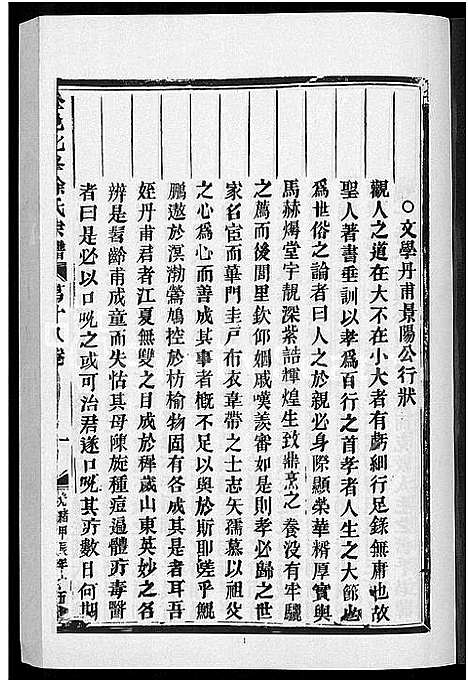 ○文學丹甫景陽公行狀
觀人之道在大不在小大者有虧細行足錄無庸也故
聖人著書垂訓以孝為百行之首孝者人生之大節也
為世俗之論者曰於親必身際顯榮華稱厚實輿
馬赫燁堂宇靚深紫誥輝煌生致鼎烹之養沒有牢驪
之薦而後閭里欽仰姻戚嘆羨審如是則孝必歸之世
家名宦而蓽門圭戶布衣韋帶之士志矢孺慕以祖父
之心為心而善成其事者慨不足以與於斯耶嗟乎鯤
鵬遨於溟渤鶯鳩控於枋榆物固有各成其是者耳吾
姪丹甫君者江夏無雙之目成於稺歲山東英妙之名
辨是髫齡甫成童而失怙其母陳旋種痘遍體疠毒醫
者曰是必以口吮之或可治君遂口吮其疠數日何期
北峯徐氏宗譜
第十八卷
光緒甲辰年